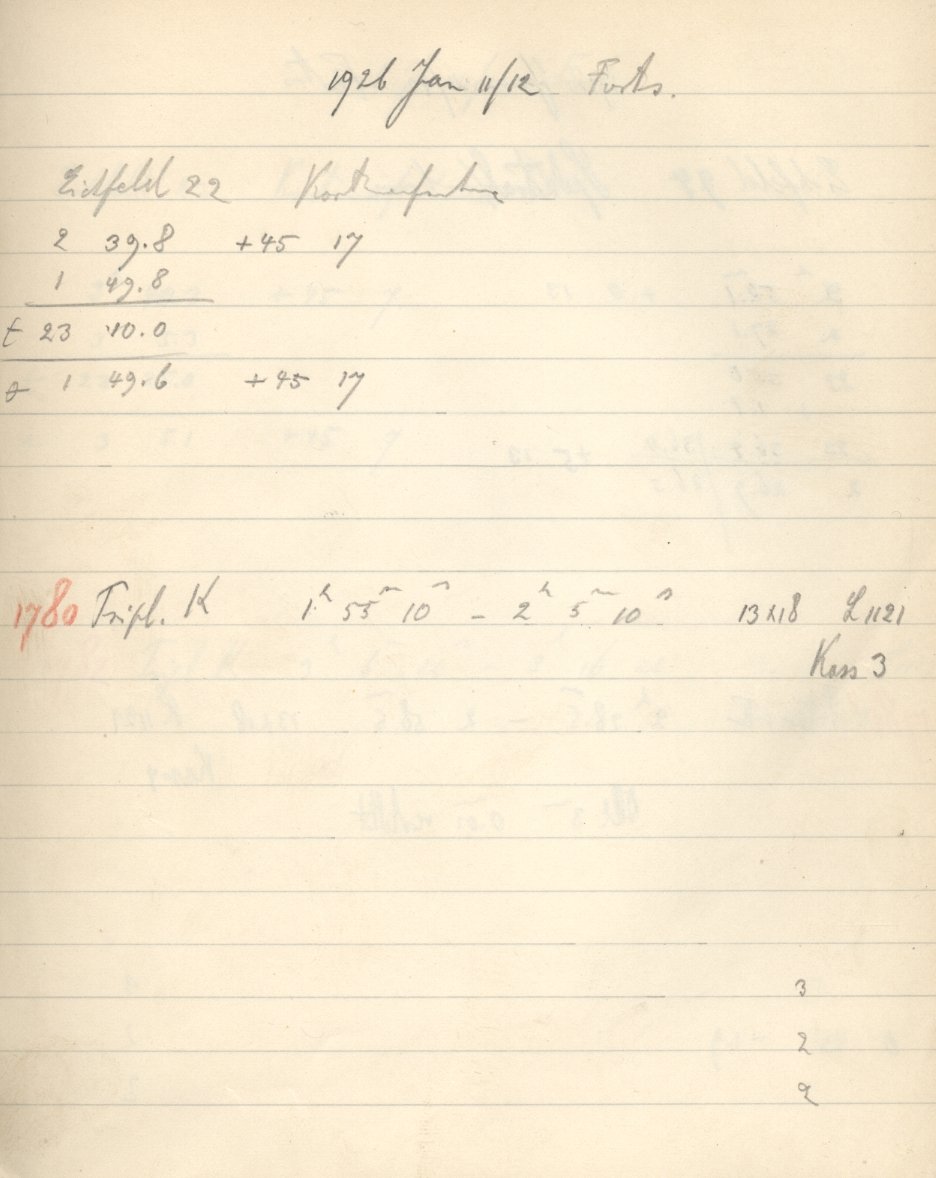 1926 Jan 11/12 Forts.
Eichfeld 22
2 39.8 +45 17
1 49.8
t 23 10.0
1 49.6 +45 17
1780 Tripl. K 1h 55m 10s – 2h 5m 10s 13x18 L 1121
Kass 3
3
2
2